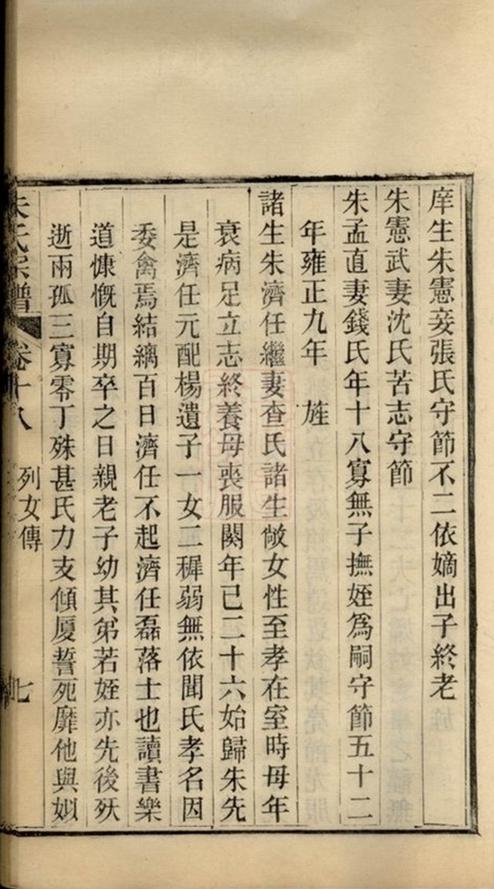 庠生朱憲妾張氏守節不二依嫡出子終老
朱憲武妻沈氏苦志守節
朱孟直妻錢氏年十八寡無子撫姪為嗣守節五十二
年雍正九年 旌
諸生朱濟任繼妻查氏諸生僘女性至孝在室時母年
衰病足立志終養母喪服闋年已二十六始歸朱先
是濟任元配楊遺子一女二穉弱無依聞氏孝名因
委禽焉結縭百日濟任不起濟任磊落士也讀書樂
道慷慨自期卒之日親老子幼其弟若姪亦先後殀
逝兩孤三寡零丁殊甚氏力支傾廈誓死靡他與姒
朱氏宗譜 卷十八 列女傳 七